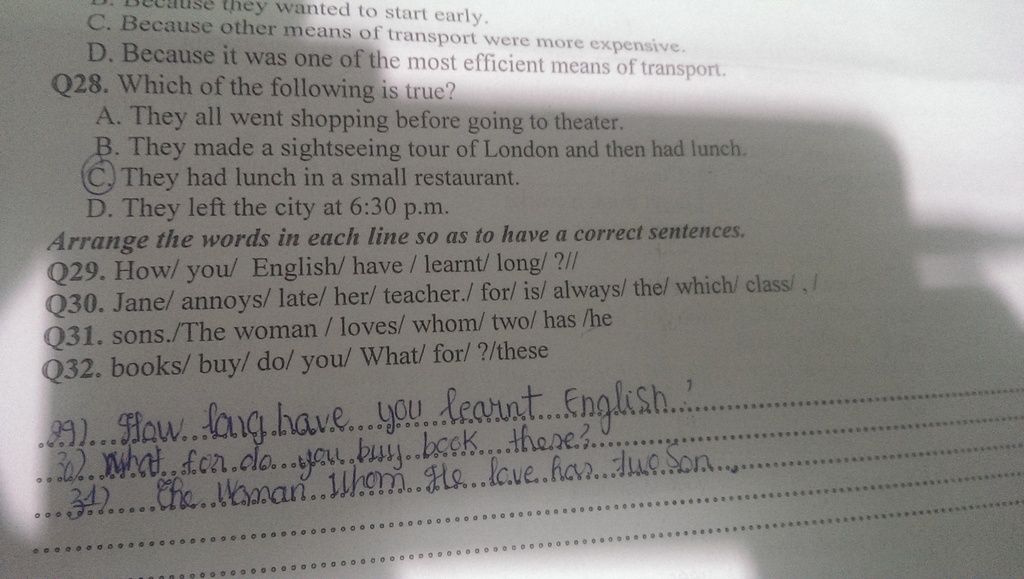 B. Because they wanted to start early.
C. Because other means of transport were more expensive.
D. Because it was one of the most efficient means of transport.
Q28. Which of the following is true?
A. They all went shopping before going to theater.
B. They made a sightseeing tour of London and then had lunch.
C. They had lunch in a small restaurant.
D. They left the city at 6:30 p.m.
Arrange the words in each line so as to have a correct sentences.
Q29. How/ you/ English/ have / learnt/ long/ ?//
Q30. Jane/ annoys/ late/ her/ teacher./ for/ is/ always/ the/ which/ class/ , /
Q31. sons./The woman / loves/ whom/ two/ has /he
Q32. books/ buy/ do/ you/ What/ for/ ?/these
29) How long have you learnt English ?
32) What for do you buy book these?
31) The Woman Whom He love has two son